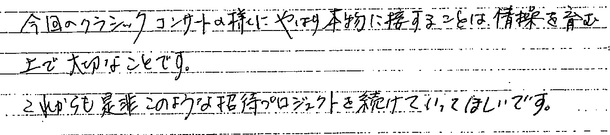 今回のクラシックコンサートの様にやはり本物に接することは、情操を育む
上で大切なことです。
これからも是非このような招待プロジェクトを続けていってほしいです。